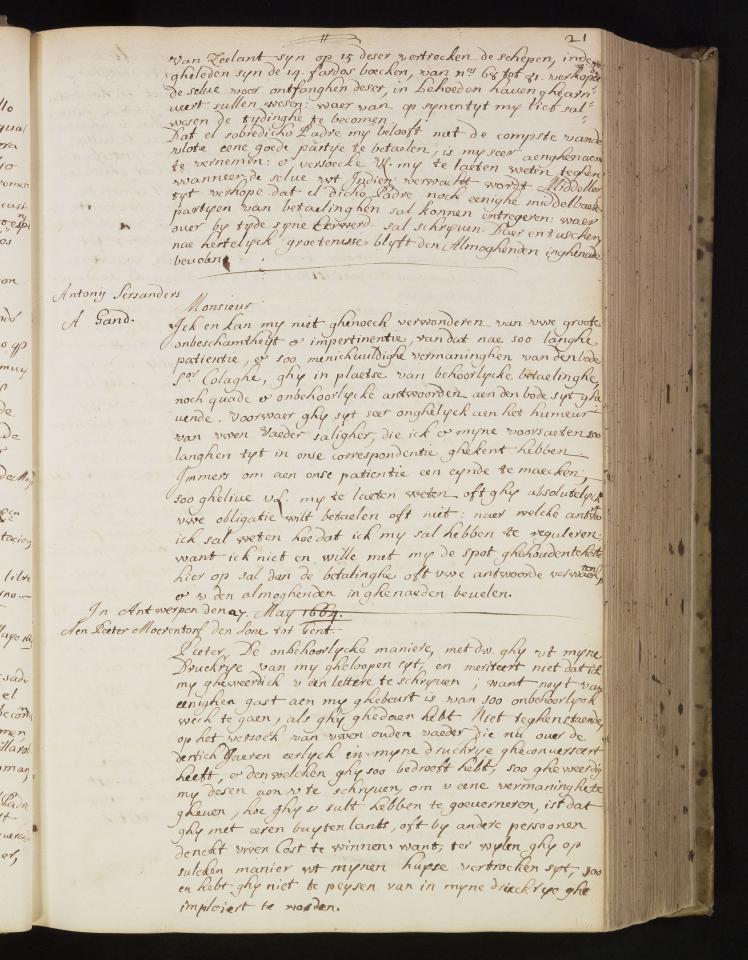 21
van Zeelant syn op 15 deser vertrocken de schepen, inde
gheleden syn de 14. fardos boecken, van nos 68 tot 81. verhope
de selve voor ontfanghen deser, in behoeden haven ghearri-
veert sullen wesen: waer van op synen tyt my lief sal
wesen de tydinghe te becomen.
Dat el sobredicho Padre my belooft met de compste vande
vlote eene goede partye te betaelen, is my seer aenghenaem
te vernemen: & versoecke VL. my te laeten weten teghen
wanneer de selve wt Indien verwacht wordt. Middeler
tyt verhope dat el dicho Padre noch eenighe middelbaere
partyen van betaelinghen sal konnen entregeren: waer
over by tyde syne Eerwerd. sal schryven. Daer entusschen
nae hertelyck groetenisse blyft den Almoghenden in ghenade
bevolen.
Antonij Sersanders
A Gand.
Monsieur
Ick en kan my niet ghenoech verwonderen van uwe groote
onbeschamtheyt & impertinentie, van dat nae soo langhe
patientie, & soo menichvuldighe vermaninghen van den bode
Sor Colaghe, ghy in plaetse van behoorlycke betaelinghe,
noch quade & onbehoorlycke antwoorden aen den bode syt ghe
vende. Voorwaer ghy syt seer onghelyck aen het humeur
van uwen Vaeder saligher, die ick & myne voorsaeten soo
langhen tyt in onse correspondentie ghekent hebben
Immers om aen onse patientie een eynde te maecken,
soo ghelieve VL. my te laeten weten oft ghy absolutelyck
uwe obligatie wilt betaelen oft niet: naer welche antwoort
ick sal weten hoe dat ick my sal hebben te reguleren
want ick niet en wille met my de spot ghehouden te hebben
hier op sal dan de betalinghe oft uwe antwoorde verwachten,
& v den almoghenden in ghenaeden bevelen.
In Antwerpen den 27. May 1664.
Aen Peeter Moerentorf den sone tot Gent.
Peeter, De onbehoorlycke maniere, met dw. ghy wt myne
Druckrye van my gheloopen syt, en meriteert niet dat ick
my gheweerdich v een lettere te schryven; want noyt van
eenighen gast aen my ghebeurt is van soo onbehoorlyck
werck te gaen, als ghy ghedaen hebt. Niet teghenstaende,
op het versoek van uwen ouden vaeder die nu over de
dertich Jaeren eerlyck in myne druckrye gheconverseert
heeft, & den welcken ghy soo bedroeft hebt, soo gheweerdig
my desen aen v te schryven, om v eene vermaninghe te
gheven, hoe ghy v sult hebben te goeverneren, ist dat
ghy met eeren buyten lants, oft by andere persoonen
denckt uwen Cost te winnen: want, ter wylen ghy op
sulcken manier wt mynen huyse vertrocken syt, soo
en hebt ghy niet te peysen van in myne druckrye ghe
imploiert te worden.